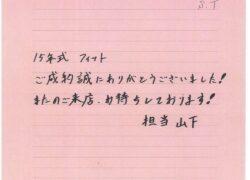 S.T
15年式 フィット
ご成約誠にありがとうございました!
またのご来店、お待ちしております!
担当 山下